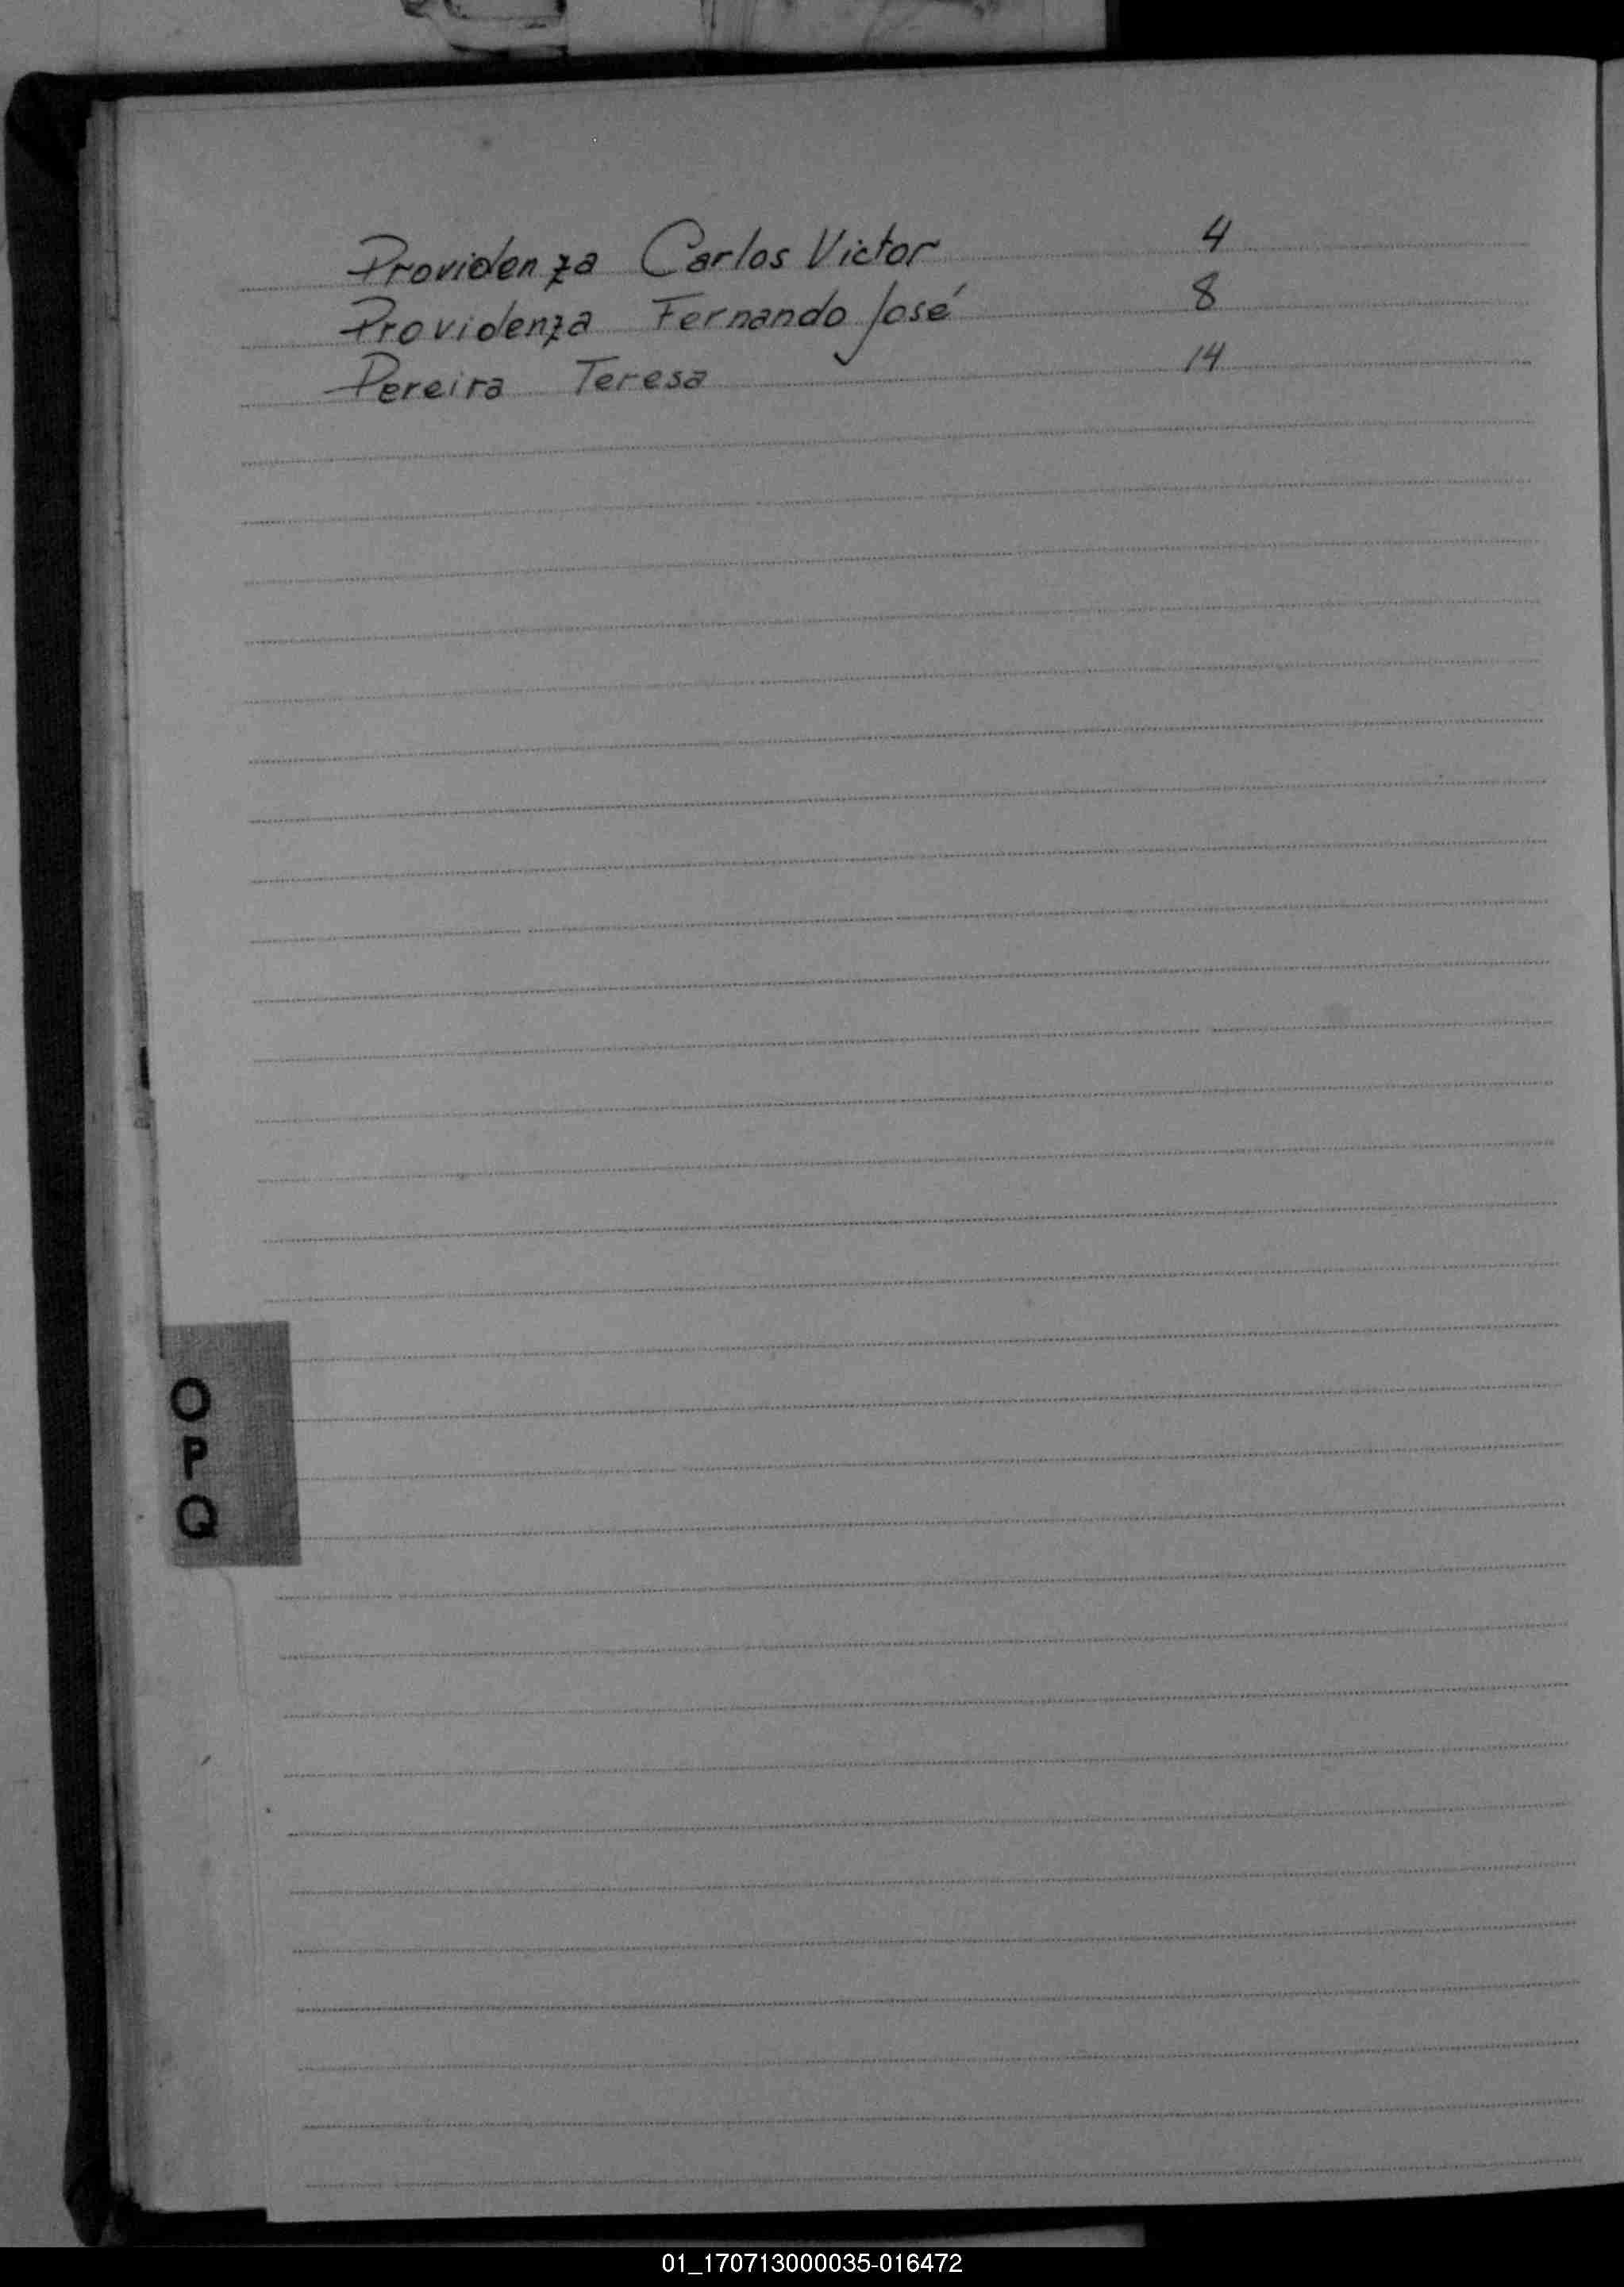 Providenza Carlos Victor 4
Providenza Fernando José 8
Pereira Teresa 14
O
P
Q
01_170713000035-016472